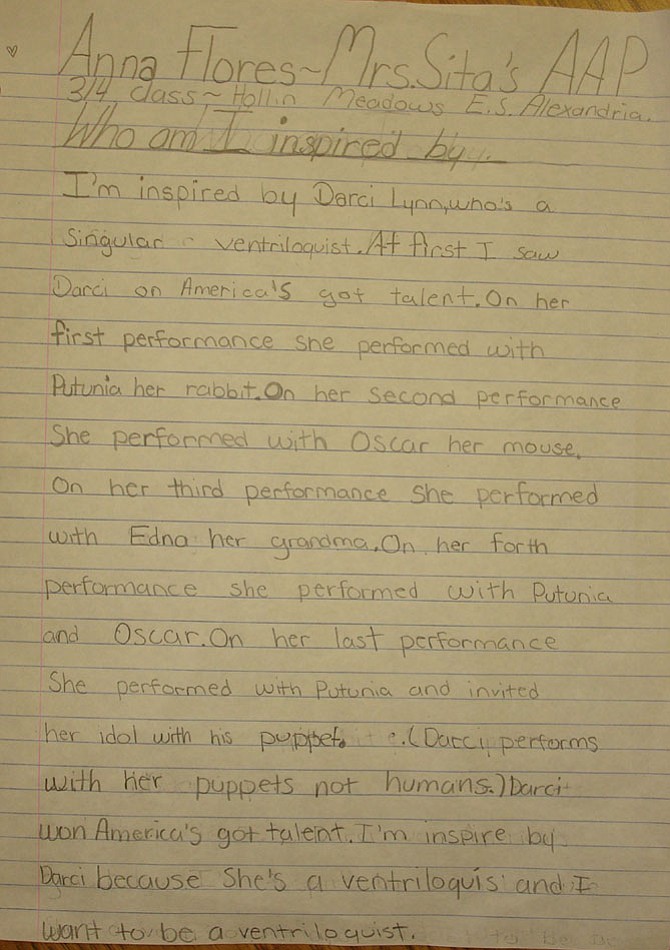 Anna Flores~Mrs.Sita's AAP
3/4 class~Hollin Meadows E.S. Alexandria.
Who am I inspired by...
I'm inspired by Darci Lynn,who's a
Singular ventriloquist.At first I saw
Darci on America's got talent.On her
first performance she performed with
Putunia her rabbit.On her second performance
She performed with Oscar her mouse.
On her third performance she performed
with Edna her grandma.On her forth
performance she performed with Putunia
and Oscar.On her last performance
She performed with Putunia and invited
her idol with his puppet. .(Darci performs
with her puppets not humans.)Darci
won America's got talent.I'm inspire by
Darci because She's a ventriloquis and I
want to be a ventriloquist.